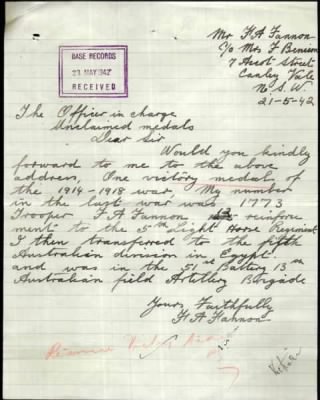 Mr F A Fannon
C/o Mrs F
7 Ascot Street
Canley Vale
N.S.W.
21-5-42
BASE RECORDS
23 MAY 1942
RECEIVED
The Officer in charge
Unclaimed medals
Dear Sir
Would you kindly
forward to me to the above
address, One victory medal of
the 1914-1918 war. My number
in the last war was 1773
Trooper F A Fannon reinforce
ment to the 5th Light Horse Regiment
I then transferred to the fifth
Australian division in Egypt.
and was in the 51st Battery 13th
Australian field Artillery Brigade
Yours Faithfully
F A Fannon